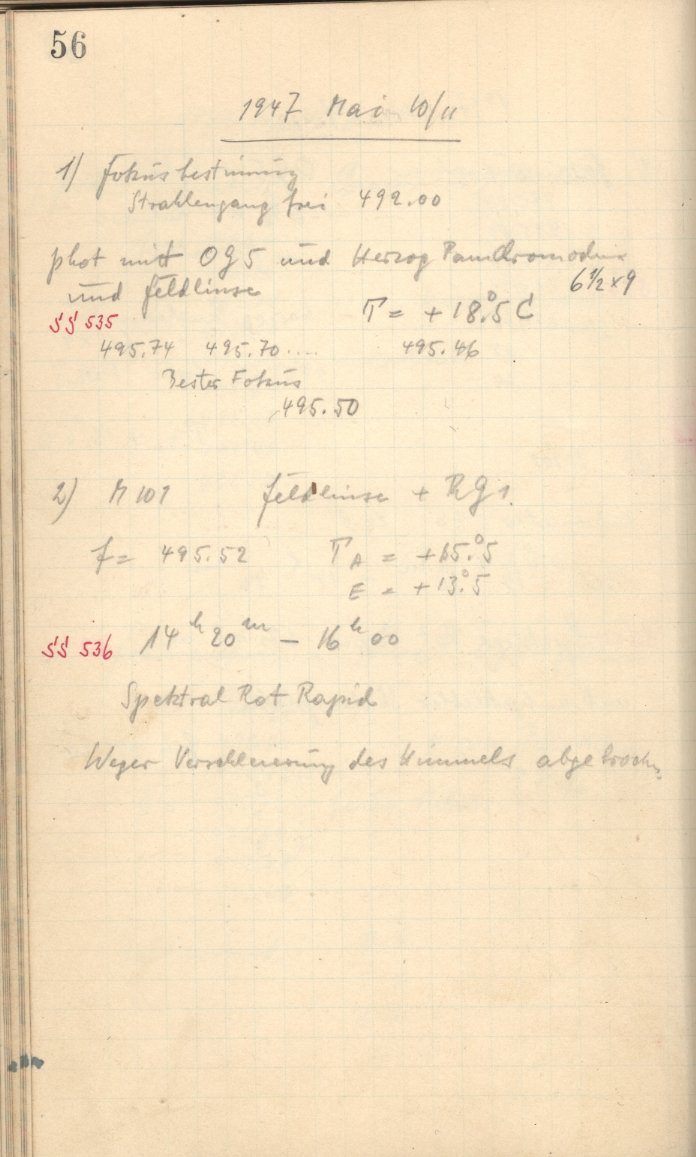 56
1947 Mai 10/11
1) Fokusbestimmung
Strahlengang frei 492.00
phot mit OG5 und Herzog Panchromodux
und Feldlinse 6 1/2 x 9
SS 535 T = + 18.°5 C
495.74 495.70.... 495.46
Bester Fokus
495.50
2) M 101 Feldlinse + RG1.
f = 495.52 T A = +15.°5
E = +13.°5
SS 536 14h 20m – 16h 00
Spektral Rot Rapid
Wegen Verschleierung des Himmels abgebrochen